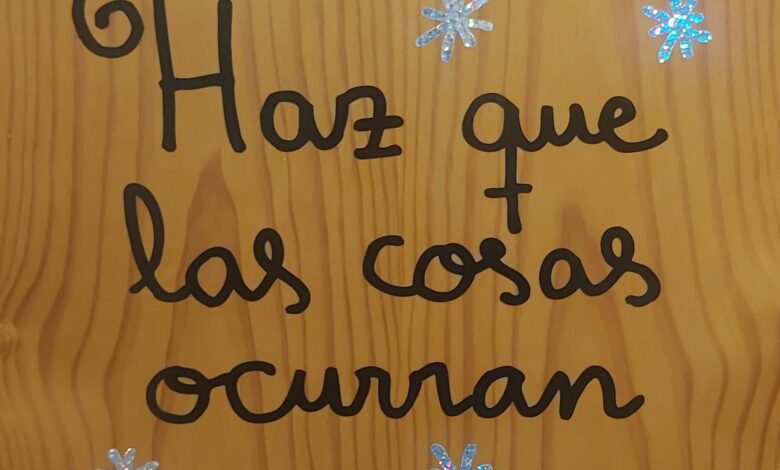 Haz que
las cosas
ocurran